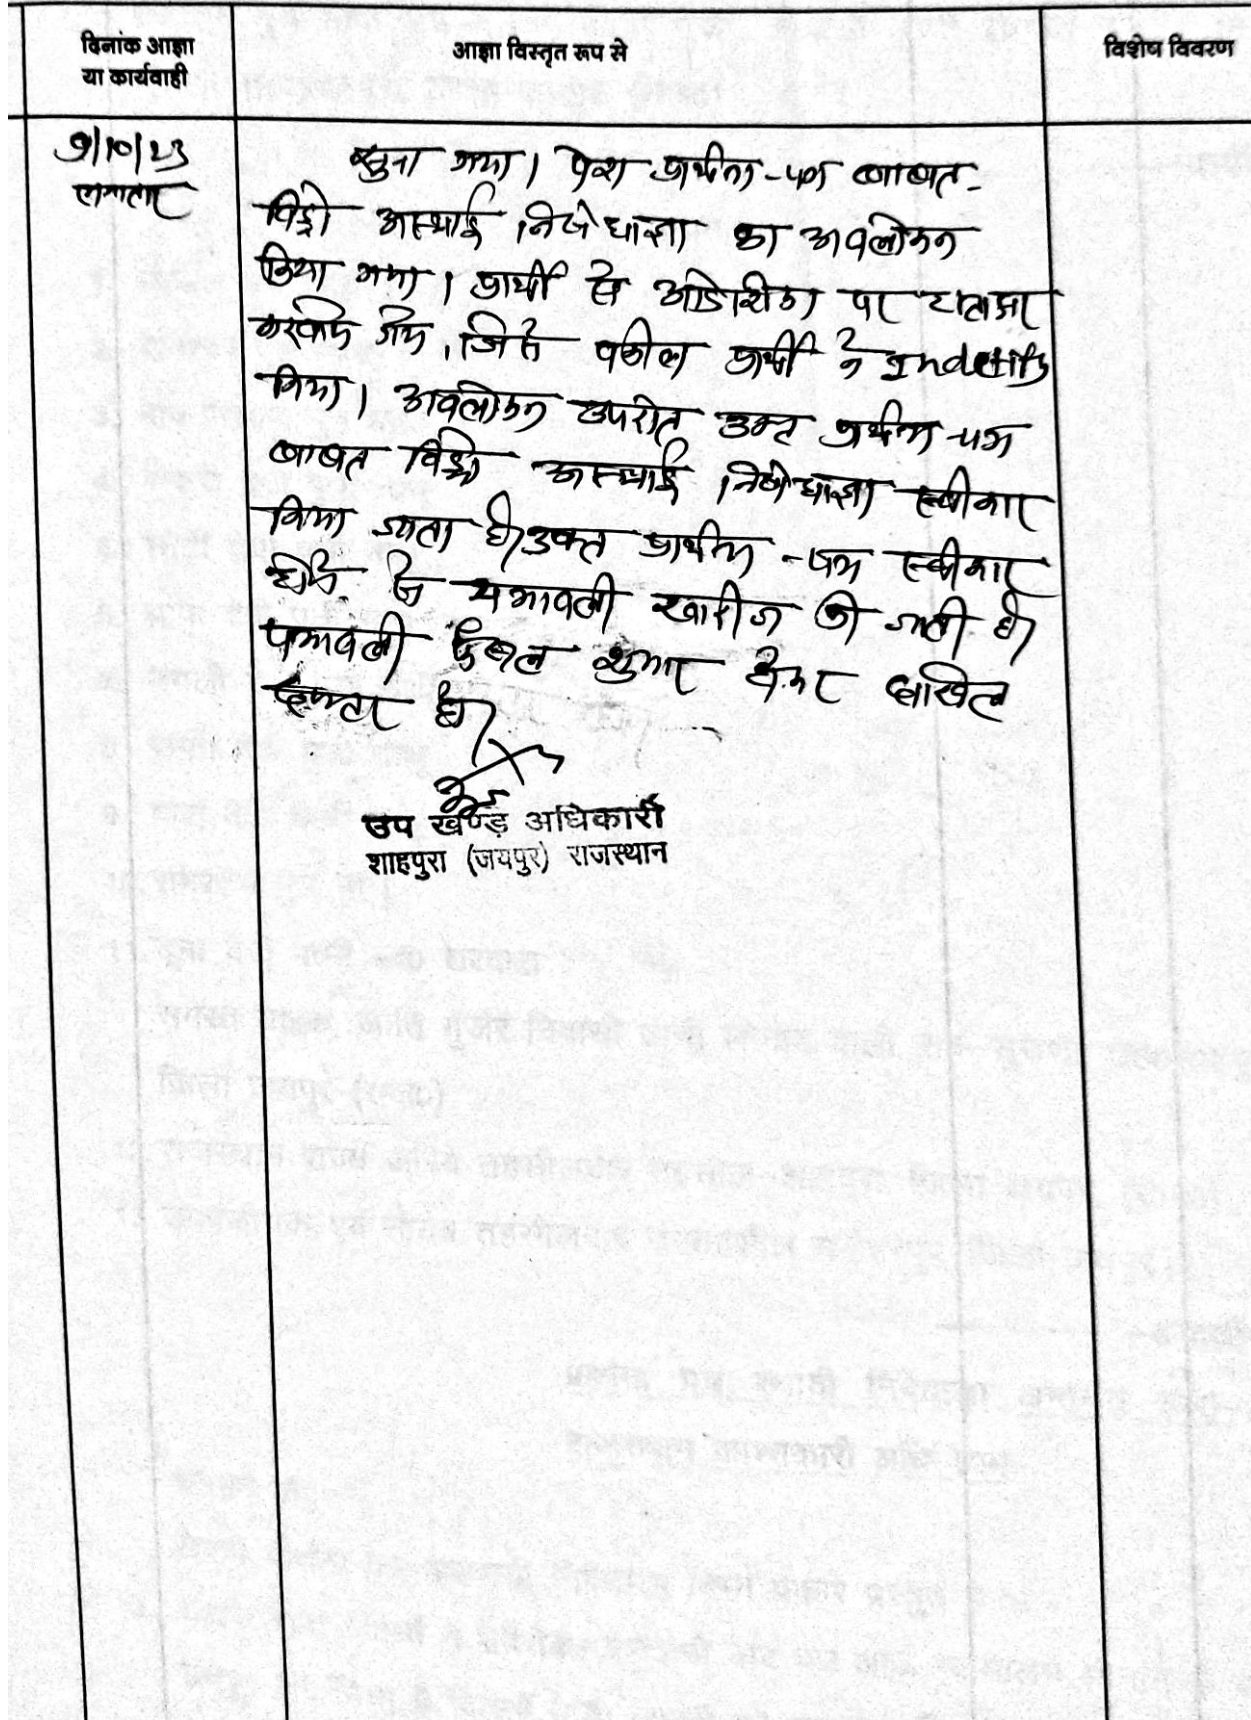 दिनांक आज्ञा
या कार्यवाही
आज्ञा विस्तृत रूप से
विशेष विवरण
9/10/23
लगातार
सुना गया। पेश प्रार्थना-पत्र बाबत
विड्रो अस्थाई निषेधाज्ञा का अवलोकन
किया गया। प्रार्थी से ऑर्डरशीट पर हस्ताक्षर
करवाये गये, जिसे वकील प्रार्थी ने Indetify
किया। अवलोकन उपरांत उक्त प्रार्थना-पत्र
बाबत विड्रो अस्थाई निषेधाज्ञा स्वीकार
किया जाता है। उक्त प्रार्थना-पत्र स्वीकार
होने से पत्रावली खारीज की जाती है।
पत्रावली फैसल शुमार होकर दाखिल
दफ्तर हो।
उप खण्ड़ अधिकारी
शाहपुरा (जयपुर) राजस्थान